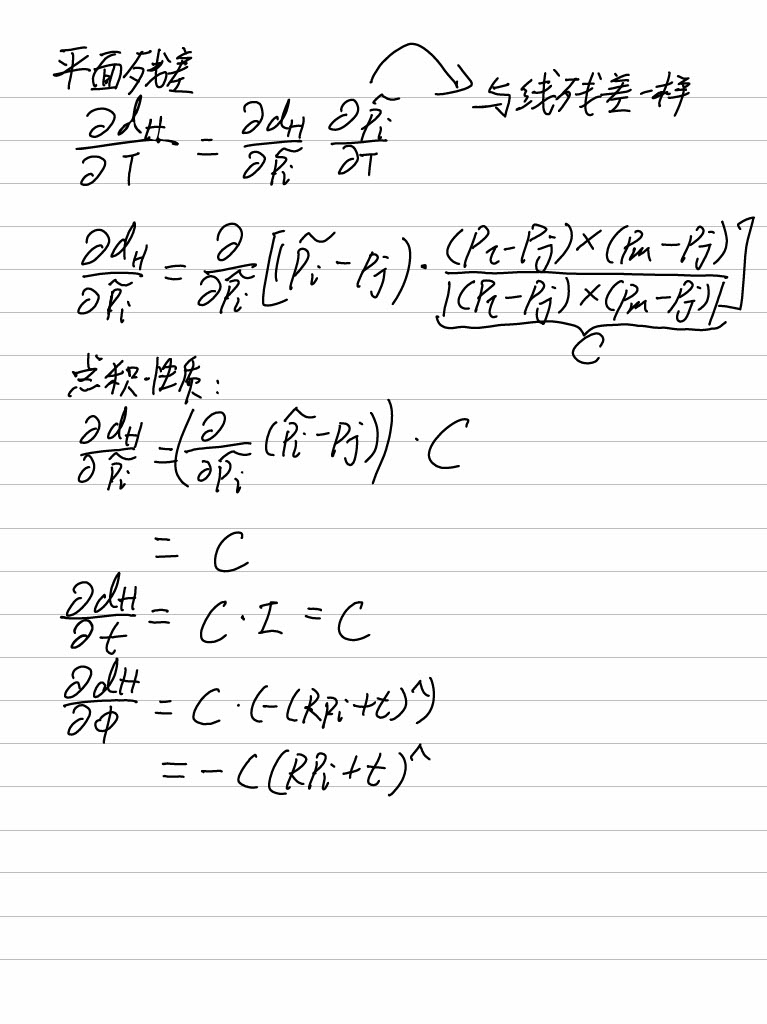 平面残差
∂d_H/∂T = ∂d_H/∂p̃_i ∂p̃_i/∂T → 与线残差一样
∂d_H/∂p̃_i = ∂/∂p̃_i [(p̃_i - p_j) · ((p_l - p_j) × (p_m - p_j))/|(p_l - p_j) × (p_m - p_j)|]
C
点积性质:
∂d_H/∂p̃_i = (∂/∂p̃_i (p̃_i - p_j)) · C
= C
∂d_H/∂t = C · I = C
∂d_H/∂φ = C · (-(Rp_i + t)^)
= - C(Rp_i + t)^